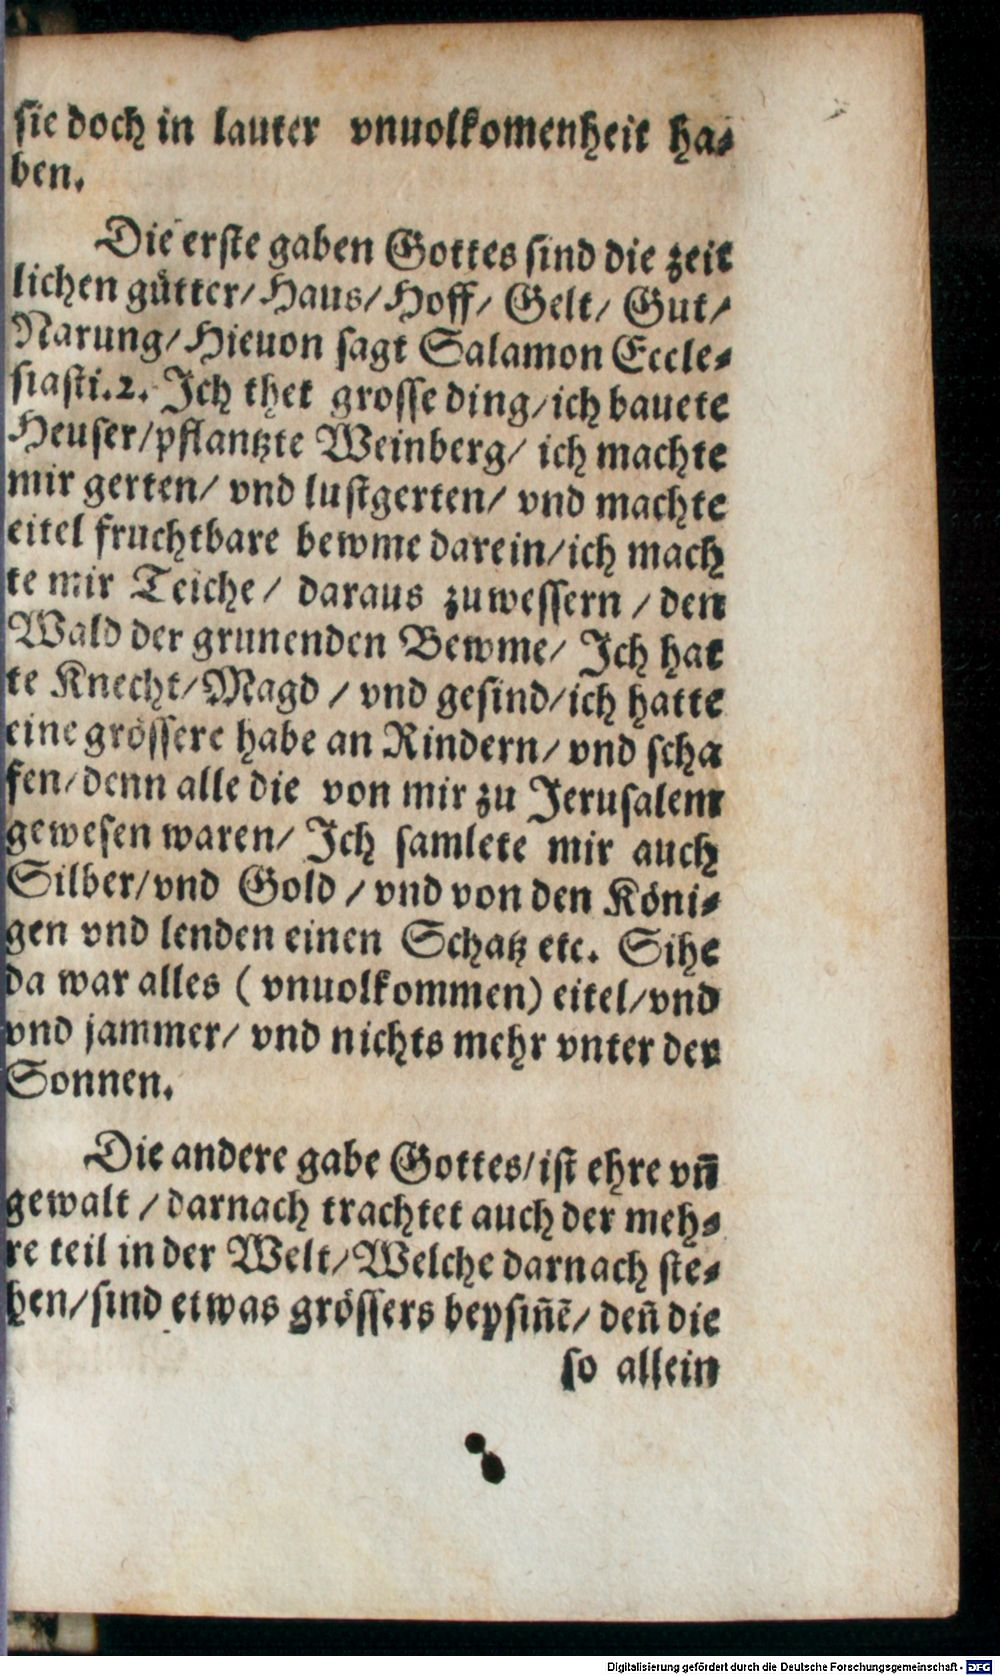 sie doch in lauter vnuolkomenheit ha-
ben.
Die erste gaben Gottes sind die zeit
lichen gütter/Haus/Hoff/ Gelt/ Gut/
Narung/Hieuon sagt Salamon Eccle-
siasti.2. Ich thet grosse ding/ich bauete
Heuser/pflantzte Weinberg/ ich machte
mir gerten/ vnd lustgerten/ vnd machte
eitel fruchtbare bewme darein/ich mach
te mir Teiche/ daraus zuwessern / den
Wald der grunenden Bewme/ Ich hat
te Knecht/Magd / vnd gesind/ich hatte
eine grössere habe an Rindern/ vnd scha
fen/denn alle die von mir zu Jerusalem
gewesen waren/ Ich samlete mir auch
Silber/vnd Gold / vnd von den Köni-
gen vnd lenden einen Schatz etc. Sihe
da war alles ( vnuolkommen) eitel/vnd
vnd jammer/ vnd nichts mehr vnter der
Sonnen.
Die andere gabe Gottes/ist ehre vn̄
gewalt / darnach trachtet auch der meh-
re teil in der Welt/Welche darnach ste-
hen/sind etwas grössers beysin̄ē/ den̄ die
so allein
Digitalisierung gefördert durch die Deutsche Forschungsgemeinschaft - DFG